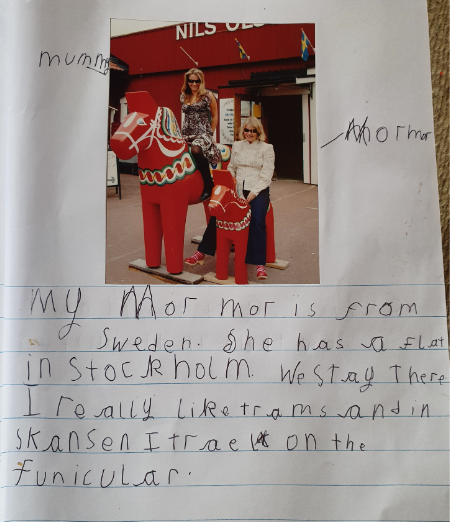 NILS OLS
mummy
Mormor
My Mormor is from
Sweden. She has a flat
in Stockholm. We stay There
I really like trams and in
skansen I trael on the
funicular.